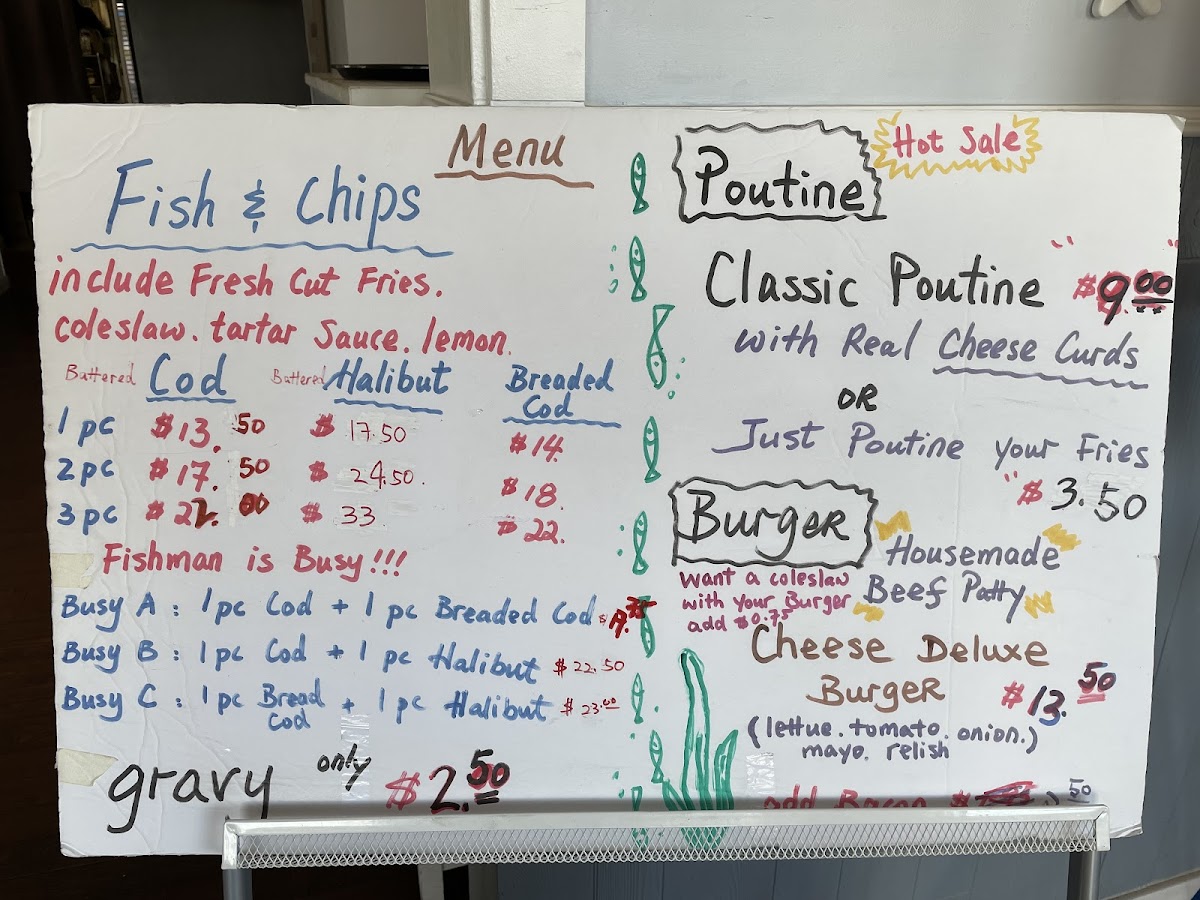 Menu
Fish & Chips
include Fresh Cut Fries.
coleslaw. tartar Sauce. lemon.
Battered Cod Battered Halibut Breaded Cod
1 pc $13.50 $17.50 $14.
2 pc $17.50 $24.50. $18.
3 pc $22.00 $33 $22.
Fishman is Busy!!!
Busy A : 1 pc Cod + 1 pc Breaded Cod
Busy B : 1 pc Cod + 1 pc Halibut $22.50
Busy C : 1 pc Bread Cod + 1 pc Halibut $23.00
gravy only $2.50
Poutine Hot Sale
Classic Poutine $9.00
with Real Cheese Curds
OR
Just Poutine your Fries
"$3.50
Burger
Housemade
Beef Patty
Want a coleslaw
with your Burger
add $0.75
Cheese Deluxe
Burger $13.50
(lettue. tomato. onion.)
mayo. relish
add Bacon $